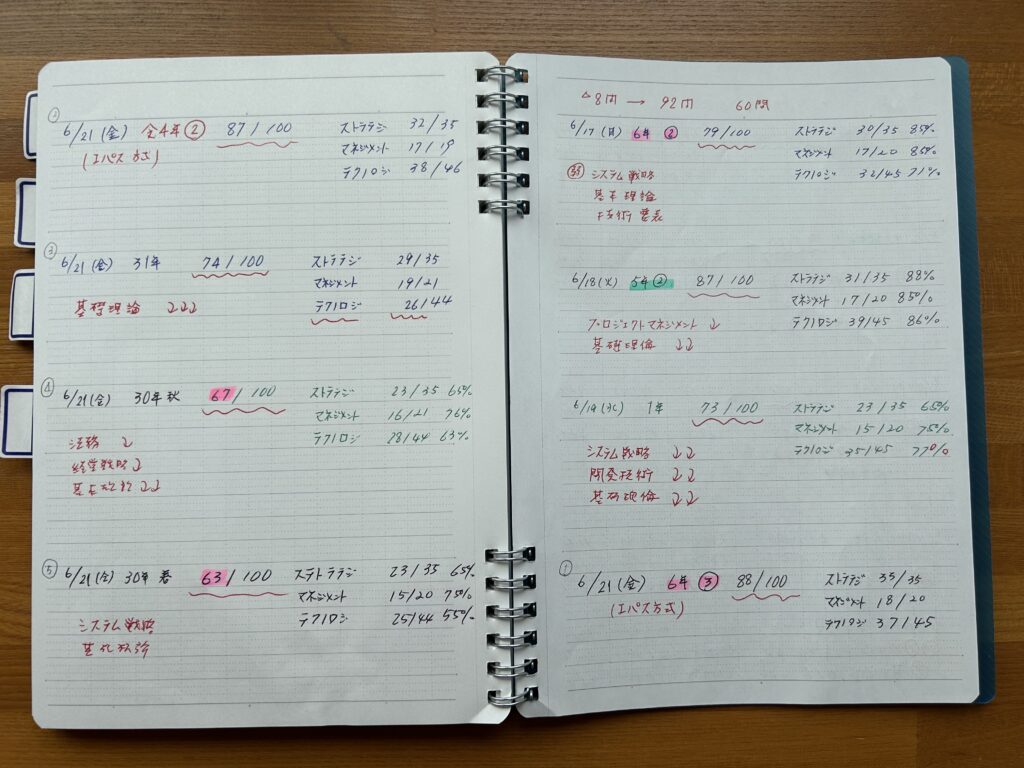 ②
6/21(金) 令4年② 87/100 ストラテジ 32/35
(エパス方式) マネジメント 17/19
テクノロジ 38/46
③
6/21(金) 31年 74/100 ストラテジ 29/35
マネジメント 19/21
基礎理論 ↓↓↓ テクノロジ 26/44
④
6/21(金) 30年秋 67/100 ストラテジ 23/35 65%
マネジメント 16/21 76%
法務 ↓ テクノロジ 28/44 63%
経営戦略 ↓
基礎理論 ↓↓
⑤
6/21(金) 30年春 63/100 ステトラテジ 23/35 65%
マネジメント 15/20 75%
システム戦略 テクノロジ 25/44 55%
基礎理論
△8問 → 92問 60問
6/17(月) 6年② 79/100 ストラテジ 30/35 85%
マネジメント 17/20 85%
システム戦略 テクノロジ 32/45 71%
基礎理論
技術要素
6/18(火) 5年② 87/100 ストラテジ 31/35 88%
マネジメント 17/20 85%
プロジェクトマネジメント ↓ テクノロジ 39/45 86%
基礎理論 ↓↓
6/19(水) 1年 73/100 ストラテジ 23/35 65%
マネジメント 15/20 75%
システム戦略 ↓↓ テクノロジ 35/45 77%
開発技術 ↓↓
基礎理論 ↓↓
①
6/21(金) 6年③ 88/100 ストラテジ 33/35
(エパス方式) マネジメント 18/20
テクノロジ 37/45